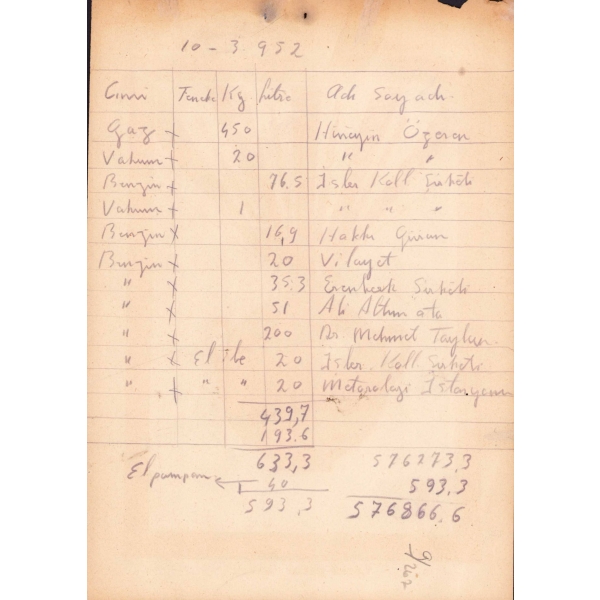 10 - 3 952
Cinsi Teneke Kg Litre Adı Soyadı
Gaz + 450 Hüseyin Özeren
Vakum + 20 " "
Benzin + 76.5 İşler Koll Şirketi
Vakum + 1 " " "
Benzin + 16,9 Hakkı Güran
Benzin + 20 Vilayet
" + 35.3 Şirketi
" + 51 Ali Altın ata
" + 200 Dr. Mehmet Taylan
" + El ile 20 İşler Koll. Şirketi
" + " " 20 Metoroloji İstasyonu
439,7
193.6
633,3 576273,3
El pompası 40 593,3
593,3 576866,6
9/262